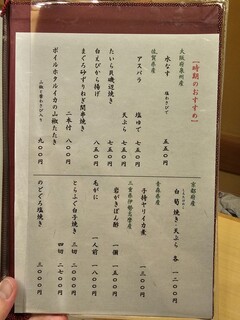 時期のおすすめ
大阪泉州産
水なす 塩わさびで 五五〇円
佐賀県産
アスパラ 塩ゆで 七五〇円
天ぷら 七五〇円
たいら貝磯辺焼き 七五〇円
白えびから揚げ 八五〇円
まぐろ砂ずりねぎ間串焼き
二本付 八〇〇円
ボイルホタルイカの山椒たたき
九〇〇円
京都府産
白筍 焼き・天ぷら 各一二〇〇円
青森県産
子持ヤリイカ煮 一三〇〇円
三重県伊勢志摩産
岩がきぽん酢 一個 一五〇〇円
毛がに 一人前 一八〇〇円
とらふぐ白子焼き 三切 二〇〇〇円
四切 二七〇〇円
のどぐろ塩焼き 三〇〇〇円